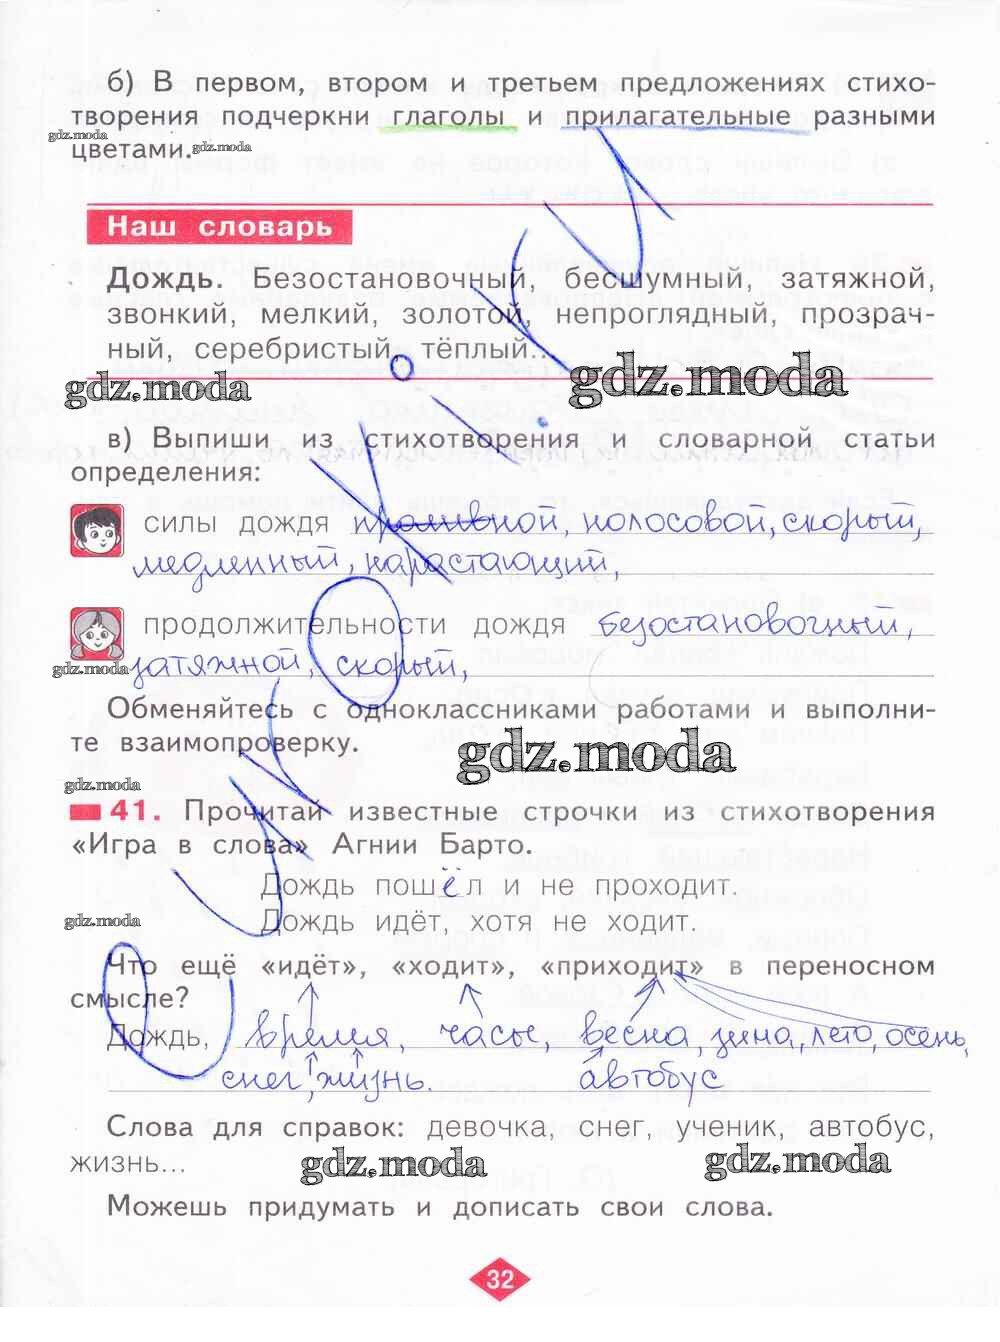 б) В первом, втором и третьем предложениях стихо-
творения подчеркни глаголы и прилагательные разными
gdz.moda
цветами. gdz.moda
Наш словарь
Дождь. Безостановочный, бесшумный, затяжной,
звонкий, мелкий, золотой, непроглядный, прозрач-
ный, серебристый, тёплый...
gdz.moda gdz.moda
в) Выпиши из стихотворения и словарной статьи
определения:
силы дождя проливной, полосовой, скорый,
медленный, нарастающий,
продолжительности дождя безостановочный,
gdz.moda затяжной, скорый,
Обменяйтесь с одноклассниками работами и выполни-
те взаимопроверку.
gdz.moda
gdz.moda
41. Прочитай известные строчки из стихотворения
«Игра в слова» Агнии Барто.
Дождь пошёл и не проходит.
gdz.moda
Дождь идёт, хотя не ходит.
Что ещё «идёт», «ходит», «приходит» в переносном
смысле?
Дождь, время, часы, весна, зима, лето, осень,
снег, жизнь. автобус
Слова для справок: девочка, снег, ученик, автобус,
жизнь...
gdz.moda gdz.moda
Можешь придумать и дописать свои слова.
32